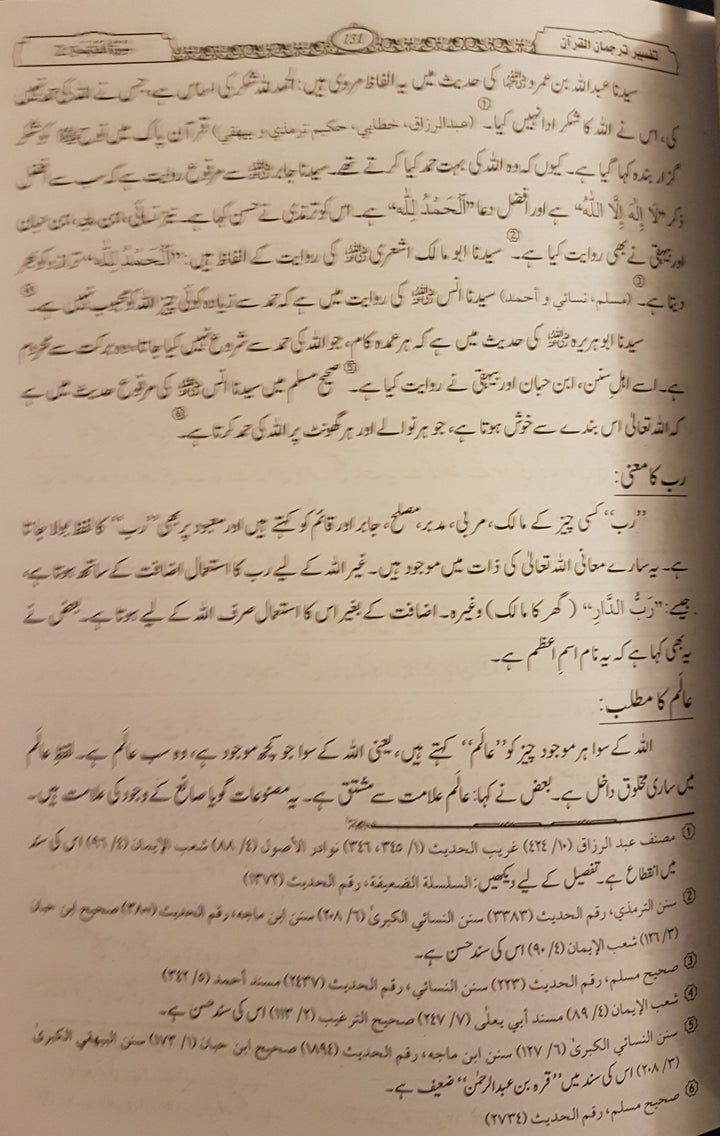 تفسیر ترجمان القرآن
131
سیدنا عبداللہ بن عمرو رضی اللہ عنہما کی حدیث میں یہ الفاظ مروی ہیں: الحمد للہ شکر کی اساس ہے، جس نے اللہ کی حمد نہیں
کی، اس نے اللہ کا شکر ادا نہیں کیا۔① (عبدالرزاق، خطابي، حكيم ترمذي و بيهقي) قرآن پاک میں نوح علیہ السلام کو شکر
گزار بندہ کہا گیا ہے۔ کیوں کہ وہ اللہ کی بہت حمد کیا کرتے تھے۔ سیدنا جابر رضی اللہ عنہ سے مرفوع روایت ہے کہ سب سے افضل
ذکر ”لَا إِلٰهَ إِلَّا اللّٰهُ“ ہے اور افضل دعا ”اَلْحَمْدُ لِلّٰه“ ہے۔ اس کو ترمذی نے حسن کہا ہے۔ نیز نسائی، ابن ماجہ، ابن حبان
اور بیہقی نے بھی روایت کیا ہے۔② سیدنا ابو مالک اشعری رضی اللہ عنہ کی روایت کے الفاظ ہیں: ”اَلْحَمْدُ لِلّٰه“ ترازو کو بھر
دیتا ہے۔③ (مسلم، نسائي و أحمد) سیدنا انس رضی اللہ عنہ کی روایت میں ہے کہ حمد سے زیادہ کوئی چیز اللہ کو محبوب نہیں ہے۔④
سیدنا ابو ہریرہ رضی اللہ عنہ کی حدیث میں ہے کہ ہر عمدہ کام، جو اللہ کی حمد سے شروع نہیں کیا جاتا، وہ برکت سے محروم
ہے۔ اسے اہلِ سنن، ابن حبان اور بیہقی نے روایت کیا ہے۔⑤ صحیح مسلم میں سیدنا انس رضی اللہ عنہ کی مرفوع حدیث میں ہے
کہ اللہ تعالیٰ اس بندے سے خوش ہوتا ہے، جو ہر نوالے اور ہر گھونٹ پر اللہ کی حمد کرتا ہے۔⑥
رب کا معنی:
”رب“ کسی چیز کے مالک، مربی، مدبر، مصلح، جابر اور قائم کو کہتے ہیں اور معبود پر بھی ”رب“ کا لفظ بولا جاتا
ہے۔ یہ سارے معانی اللہ تعالیٰ کی ذات میں موجود ہیں۔ غیر اللہ کے لیے رب کا استعمال اضافت کے ساتھ ہوتا ہے،
جیسے: ”رَبُّ الدَّارِ“ (گھر کا مالک) وغیرہ۔ اضافت کے بغیر اس کا استعمال صرف اللہ کے لیے ہوتا ہے۔ بعض نے
یہ بھی کہا ہے کہ یہ نام اسمِ اعظم ہے۔
عالَم کا مطلب:
اللہ کے سوا ہر موجود چیز کو ”عالَم“ کہتے ہیں، یعنی اللہ کے سوا جو کچھ موجود ہے، وہ سب عالَم ہے۔ لفظِ عالَم
میں ساری مخلوق داخل ہے۔ بعض نے کہا: عالَم علامت سے مشتق ہے۔ یہ مصنوعات گویا صانع کے وجود کی علامت ہیں۔
① مصنف عبد الرزاق (١٠/ ٤٢٤) غریب الحدیث (١/ ٣٤٥، ٣٤٦) نوادر الأصول (٤/ ٨٨) شعب الإیمان (٤/ ٩٦) اس کی سند
میں انقطاع ہے۔ تفصیل کے لیے دیکھیں: السلسلة الضعيفة، رقم الحديث (١٣٧٢)
② سنن الترمذي، رقم الحديث (٣٣٨٣) سنن النسائي الكبرىٰ (٦/ ٢٠٨) سنن ابن ماجه، رقم الحديث (٣٨٠٠) صحيح ابن حبان
(٣/ ١٢٦) شعب الإيمان (٤/ ٩٠) اس کی سند حسن ہے۔
③ صحيح مسلم، رقم الحديث (٢٢٣) سنن النسائي، رقم الحديث (٢٤٣٧) مسند أحمد (٥/ ٣٤٢)
④ شعب الإيمان (٤/ ٨٩) مسند أبي يعلى (٧/ ٢٤٧) صحيح الترغيب (٢/ ١١٣) اس کی سند حسن ہے۔
⑤ سنن النسائي الكبرىٰ (٦/ ١٢٧) سنن ابن ماجه، رقم الحديث (١٨٩٤) صحيح ابن حبان (١/ ١٧٣) سنن البيهقي الكبرىٰ
(٣/ ٢٠٨) اس کی سند میں ”قرہ بن عبدالرحمٰن“ ضعیف ہے۔
⑥ صحيح مسلم، رقم الحديث (٢٧٣٤)